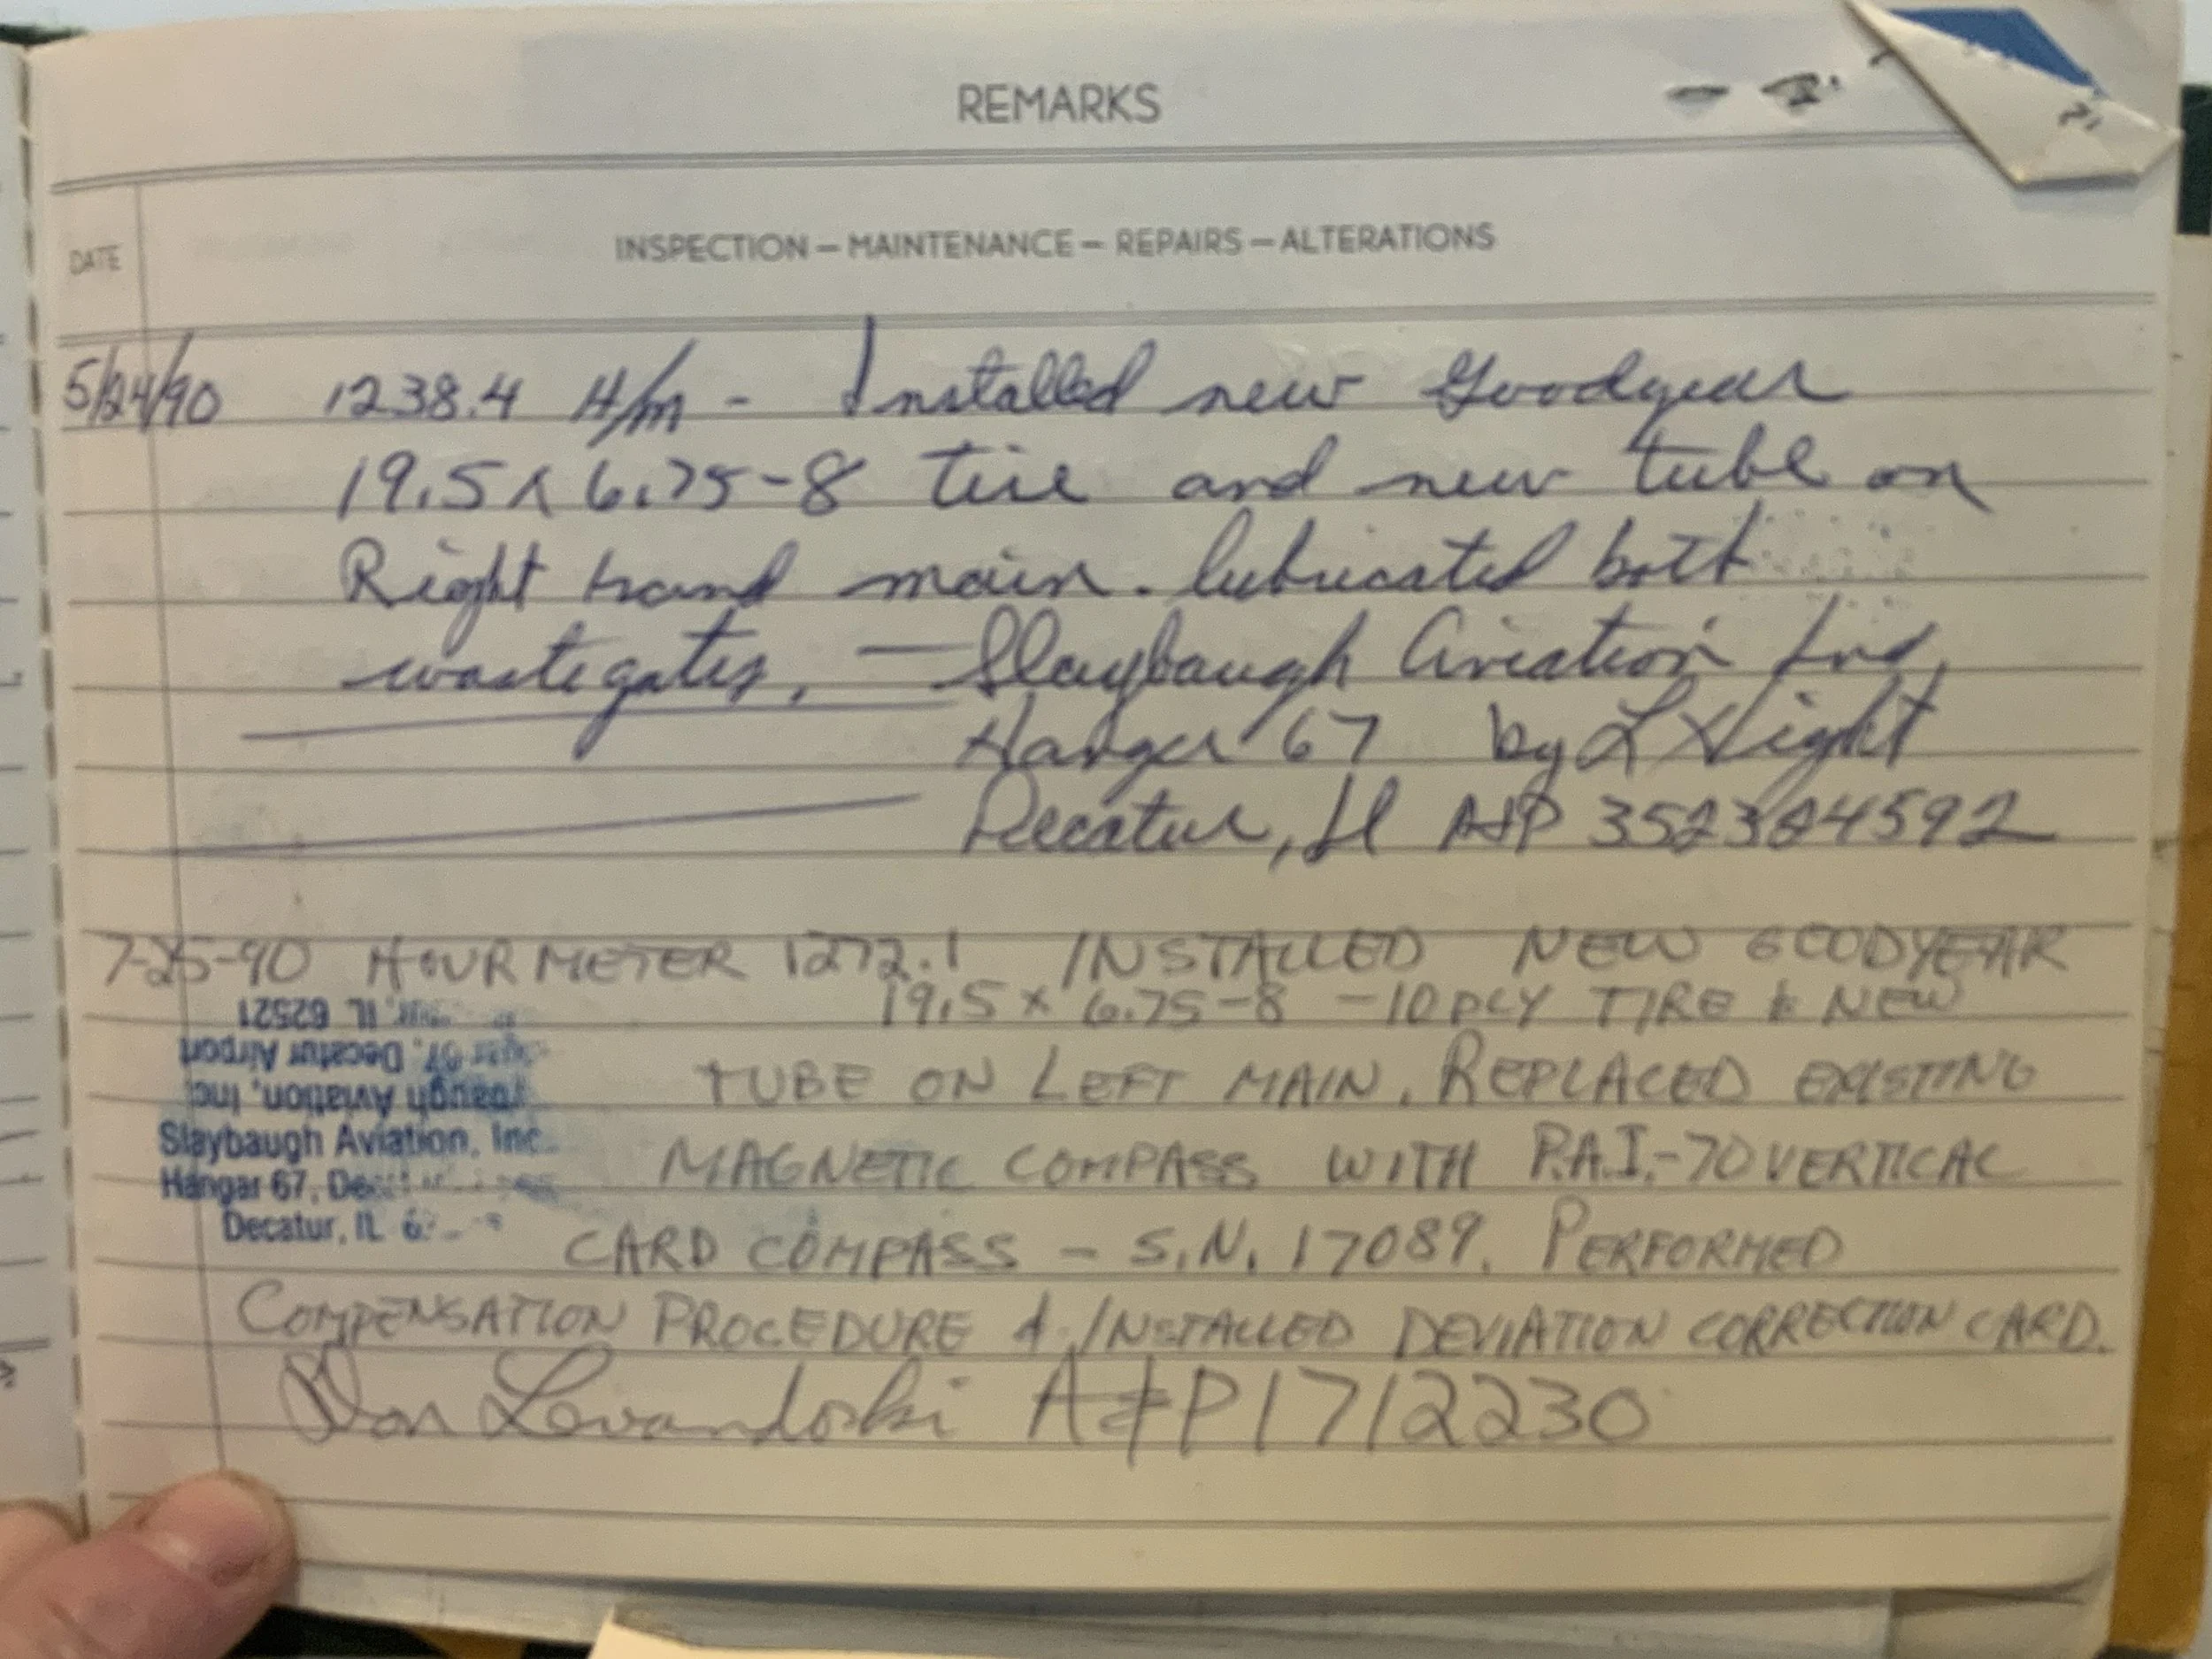 REMARKS
DATE
INSPECTION — MAINTENANCE — REPAIRS — ALTERATIONS
5/24/90 1238.4 H/m - Installed new Goodyear
19.5 x 6.75-8 tire and new tube on
Right hand main. lubricated both
wastegates. — Slaybaugh Aviation Inc,
Hanger 67 by L Hight
Decatur, Il A&P 352384592
7-25-90 HOUR METER 1272.1 INSTALLED NEW GOODYEAR
19.5 x 6.75-8 -10 PLY TIRE & NEW
TUBE ON LEFT MAIN. REPLACED EXISTING
MAGNETIC COMPASS WITH P.A.I.-70 VERTICAL
CARD COMPASS - S.N. 17089. PERFORMED
COMPENSATION PROCEDURE & INSTALLED DEVIATION CORRECTION CARD.
Don Levandoski A&P 1712230
IL 62521
67, Decatur Airport
Aviation, Inc
Slaybaugh Aviation, Inc.
Hangar 67,
Decatur, IL